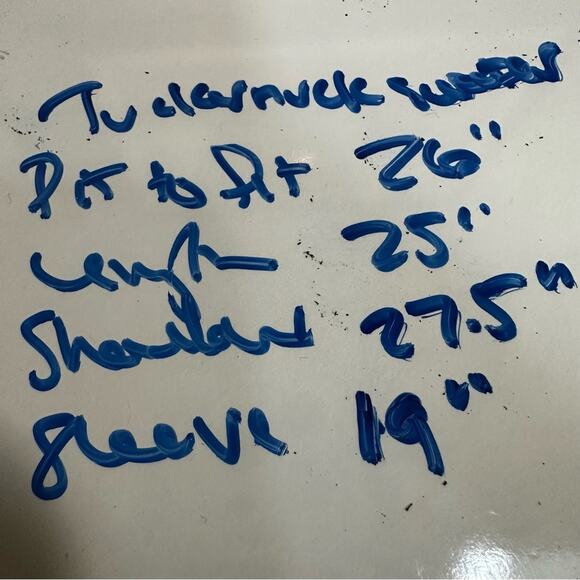 Turtleneck sweater
Pit to Pit 26"
Length 25"
Shoulder 27.5"
Sleeve 19"